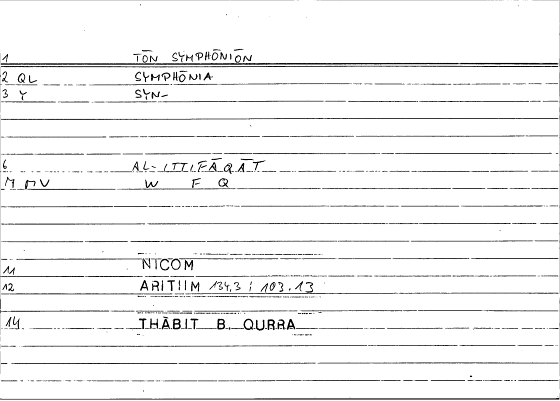 1 TŌN SYMPHŌNIŌN
2 QL SYMPHŌNIA
3 Y SYN-
6 AL-ITTIFĀQĀT
M MV W F Q
11 NICOM
12 ARITIIM 134.3 ; 103.13
14 THĀBIT B. QURRA